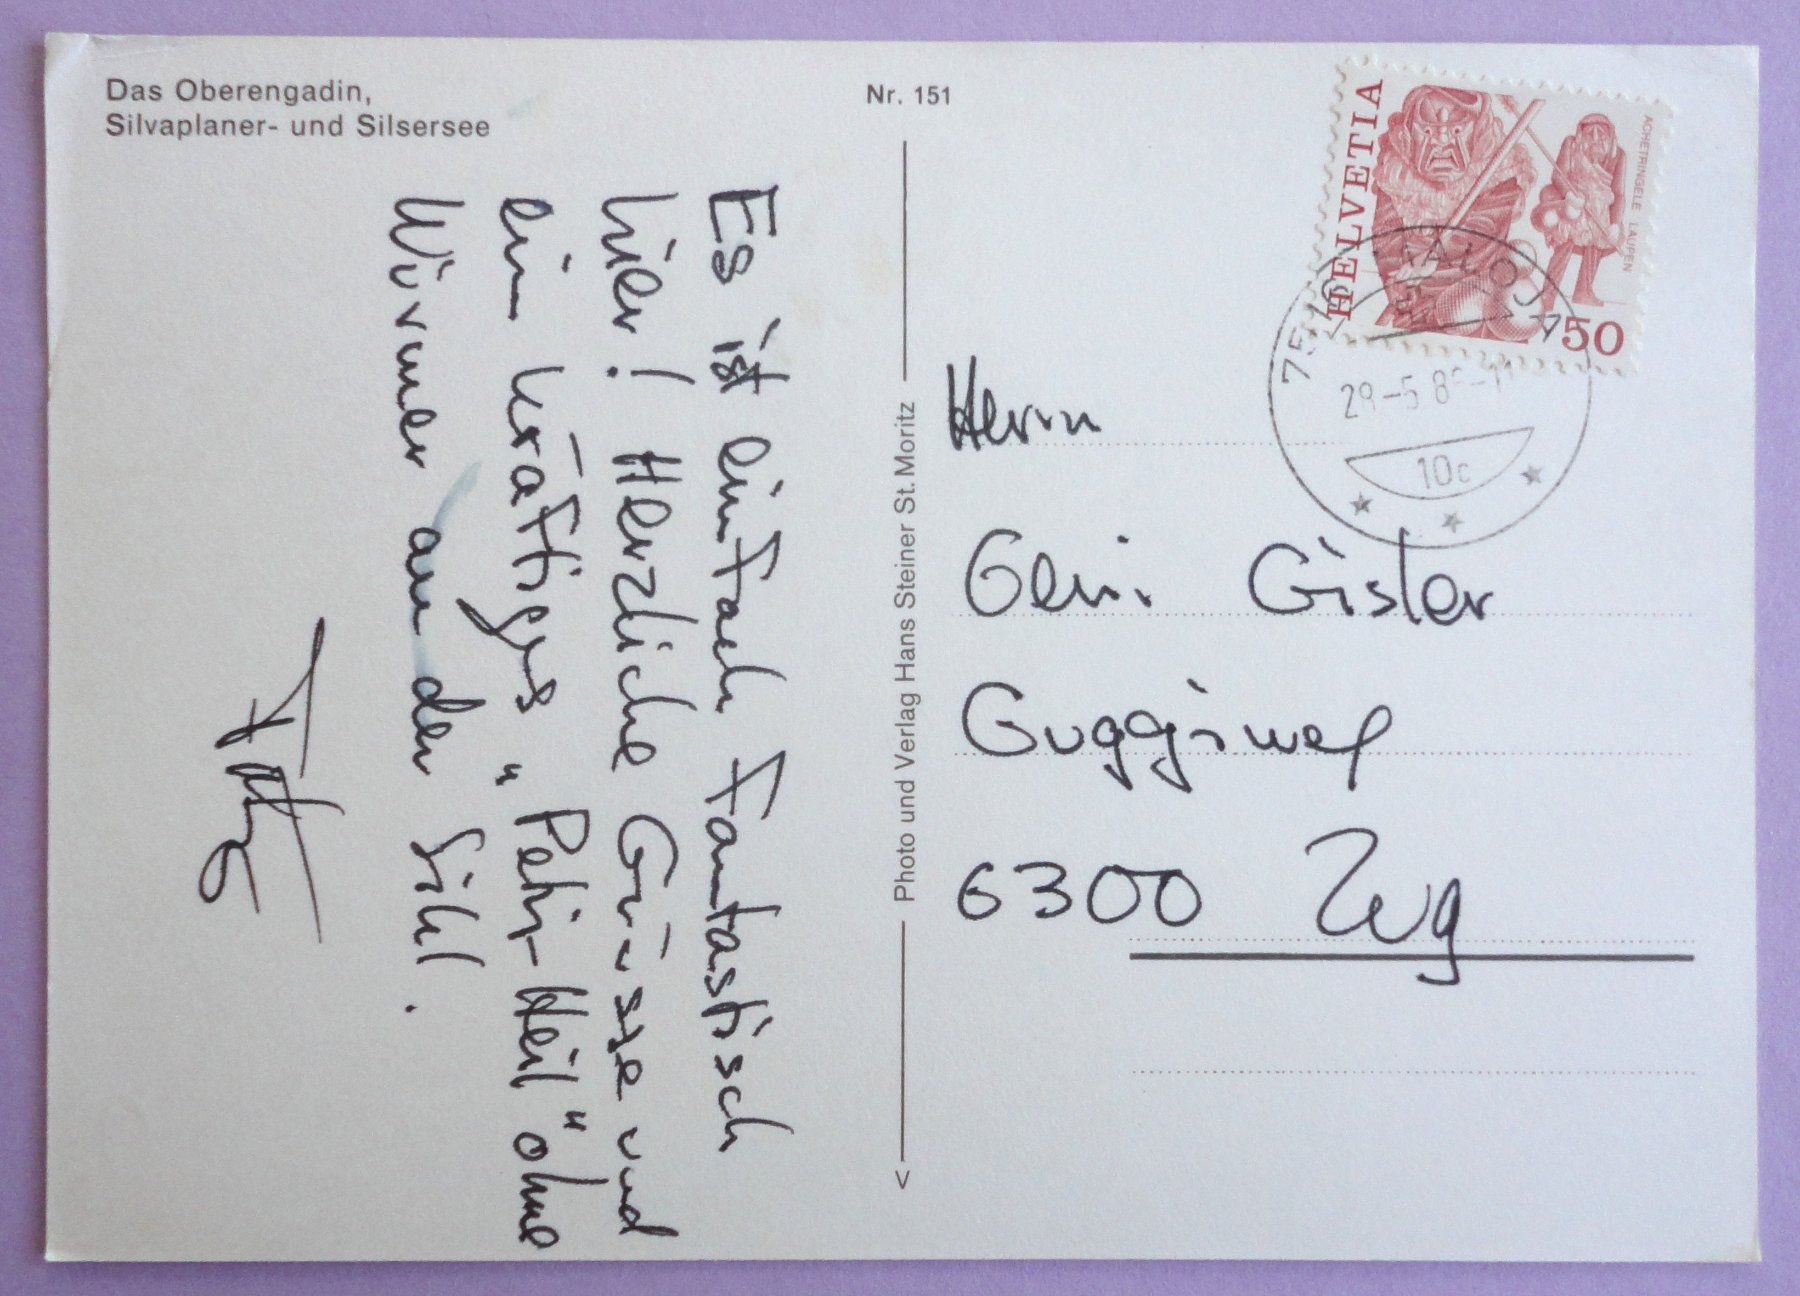 Das Oberengadin,
Silvaplaner- und Silsersee
Nr. 151
Es ist einfach fantastisch
hier! Herzliche Grüsse und
ein kräftiges "Petri-Heil" ohne
Würmer an der Sihl.
Photo und Verlag Hans Steiner St. Moritz
HELVETIA
ACHETRINGELE LAUPEN
50
MALOJA
10c
Herrn
Geni Gisler
Guggiweg
6300 Zug